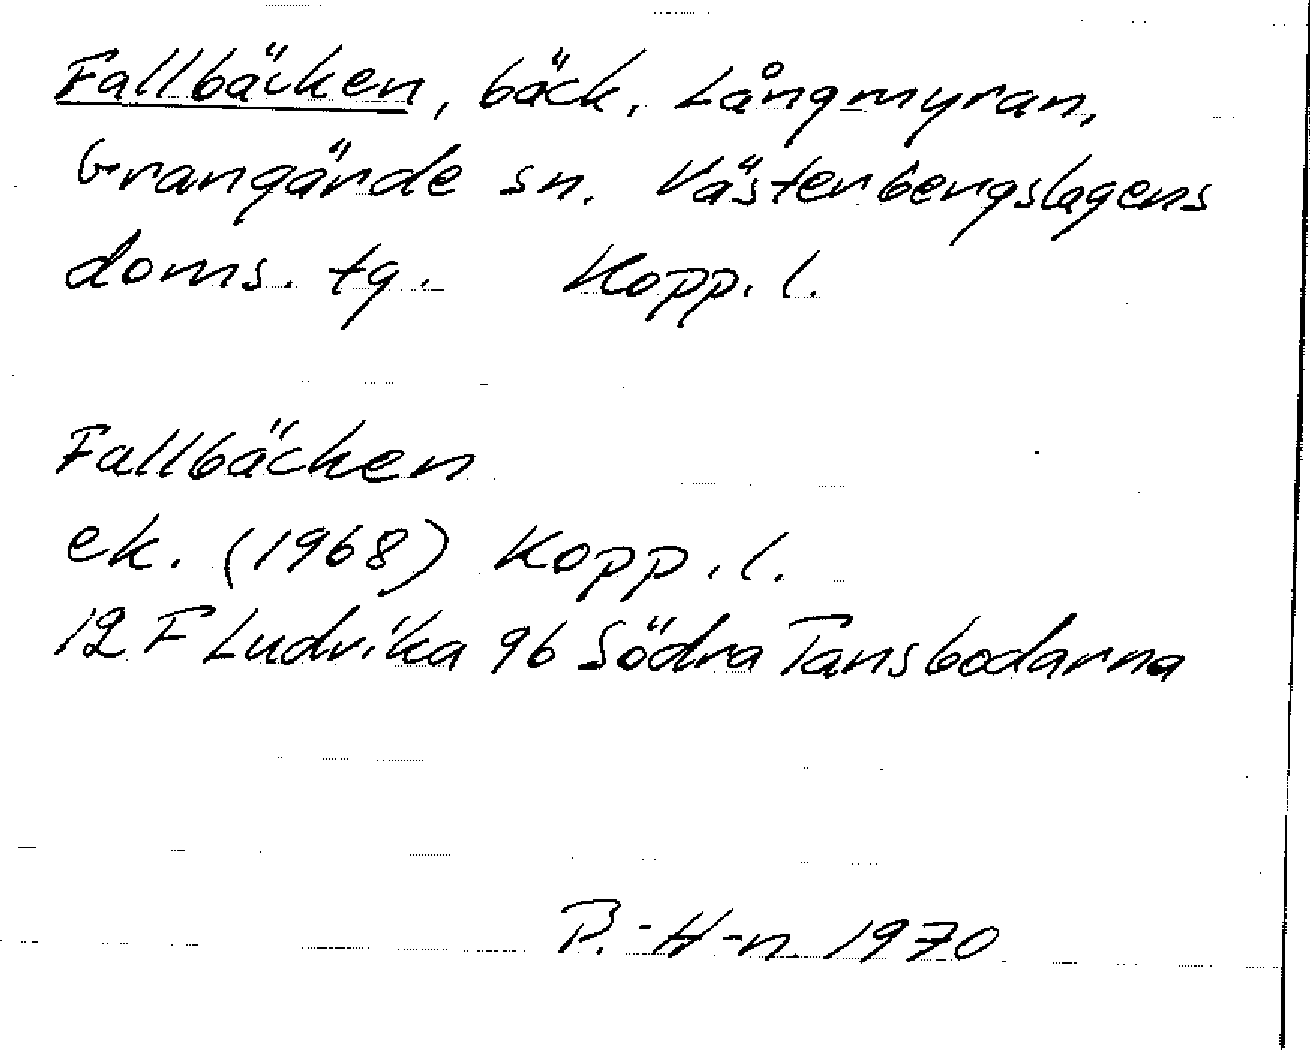 Fallbäcken, bäck, Långmyran,
Grangärde sn. Västerbergslagens
doms. tg. Kopp. l.
Fallbäcken
ek. (1968) Kopp. l.
12 F Ludvika 9b Södra Tansbodarna
P. -H-n 1970